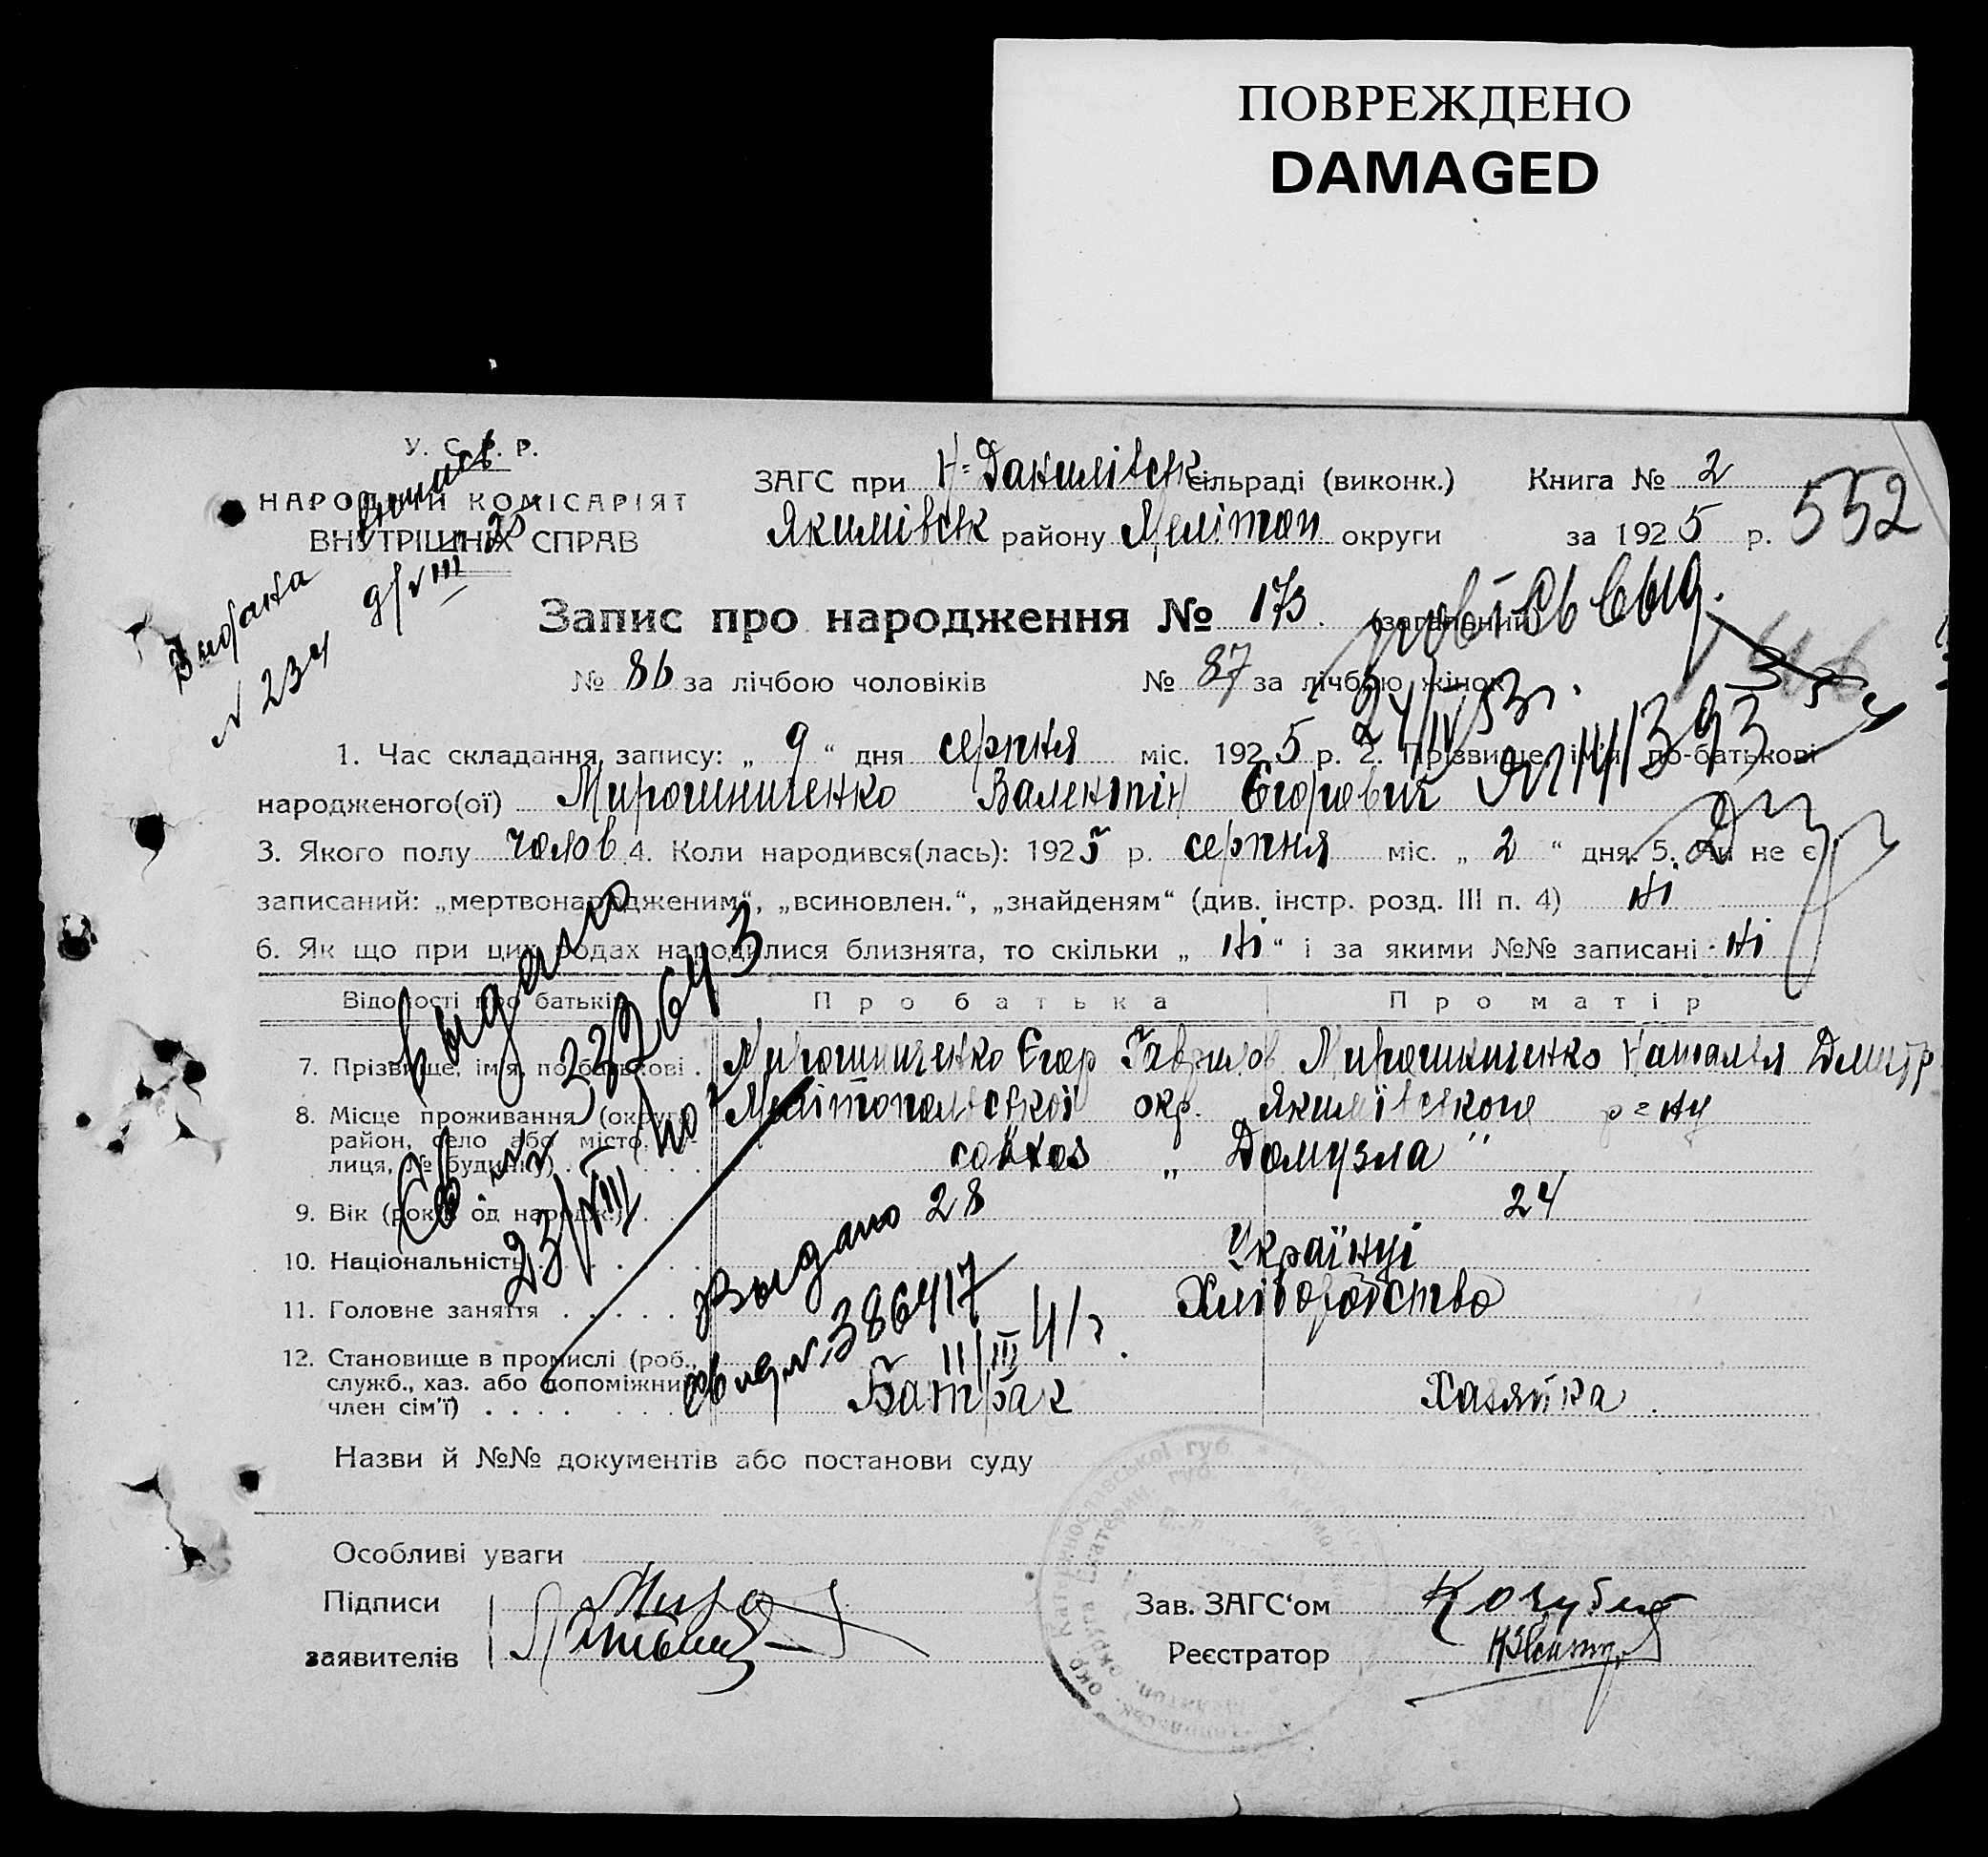 ПОВРЕЖДЕНО
DAMAGED
У. С. Р. Р.
НАРОДНІЙ КОМІСАРІЯТ
ВНУТРІШНІХ СПРАВ
ЗАГС при Н=Данилівськ сільраді (виконк.) Книга № 2
Якимівськ району Мелітоп округи за 1925 р.
552
Запис про народження № 173. (загальний)
№ 86 за лічбою чоловіків № 87 за лічбою жінок
1. Час складання запису: „ 9 “ дня серпня міс. 1925 р. 2. Прізвище, ім'я, по-батькові
народженого(ої) Мирошниченко Валентін Єгорович
3. Якого полу чолов 4. Коли народився(лась): 1925 р. серпня міс. „ 2 “ дня. 5. Чи не є
записаний: „мертвонародженим“, „всиновлен.“, „знайденям“ (див. інстр. розд. III п. 4) ні
6. Як що при цих родах народилися близнята, то скільки „ ні “ і за якими №№ записані ні
Відомості про батьків Про батька Про матір
7. Прізвище, ім'я, по-батькові . Мирошниченко Єгор Гаврилов Мирошниченко Наталья Дмитр
8. Місце проживання (округ, Мелітопольської окр. Якимівського р=ну
район, село або місто,
лиця, № будинку) . . . совхоз „ Домузла ”
9. Вік (років од народж.) . . 28 24
10. Національність . . . . Українці
11. Головне заняття . . . . . Хліборобство
12. Становище в промислі (роб.,
служб., хаз. або допоміжний
член сім'ї) . . . . Батрак Хазяйка.
Видана
Выпись
№ 234
Выдано
23/VIII
Выдано
№ 386417
11/III 41 г.
24/IV 53 г.
Назви й №№ документів або постанови суду
Особливі уваги
Підписи
заявителів
Зав. ЗАГС‘ом Кочубей
Реєстратор